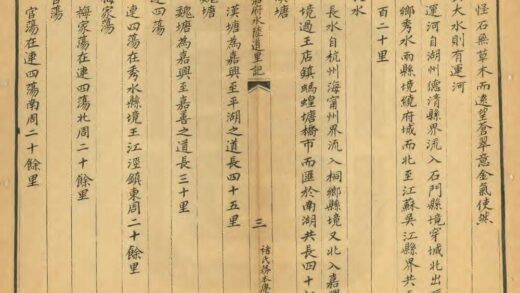 怪石無草木而遠望蒼翠意金氣使然
大水則有運河
運河自湖州德清縣界流入石門縣境穿城北出
鄉秀水兩縣境繞府城而北至江蘇吳江縣界共
百二十里
水
長水自杭州海甯州界流入桐鄉縣境又北入嘉
境過王店鎮螞蝗塘橋市而匯於南湖共長四十
塘
府水陸道里記 三
漢塘為嘉興至平湖之道長四十五里
塘
魏塘為嘉興至嘉善之道長三十里
四蕩
連四蕩在秀水縣境王江涇鎮東周二十餘里
家蕩
梅家蕩在連四蕩北周二十餘里
蕩
官蕩在連四蕩南周二十餘里